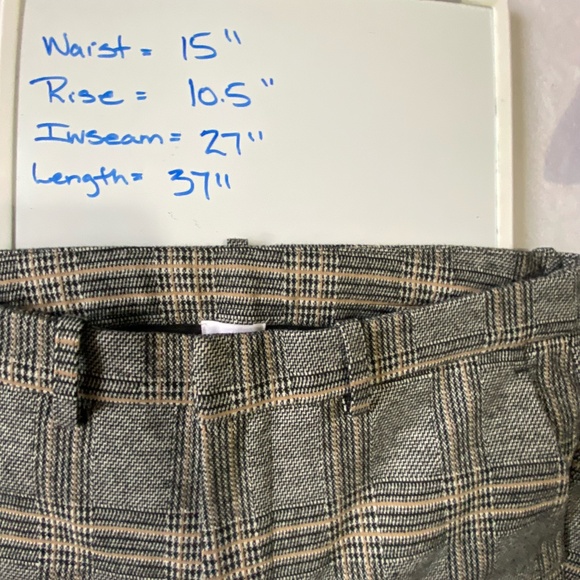 Waist = 15"
Rise = 10.5"
Inseam = 27"
Length = 37"